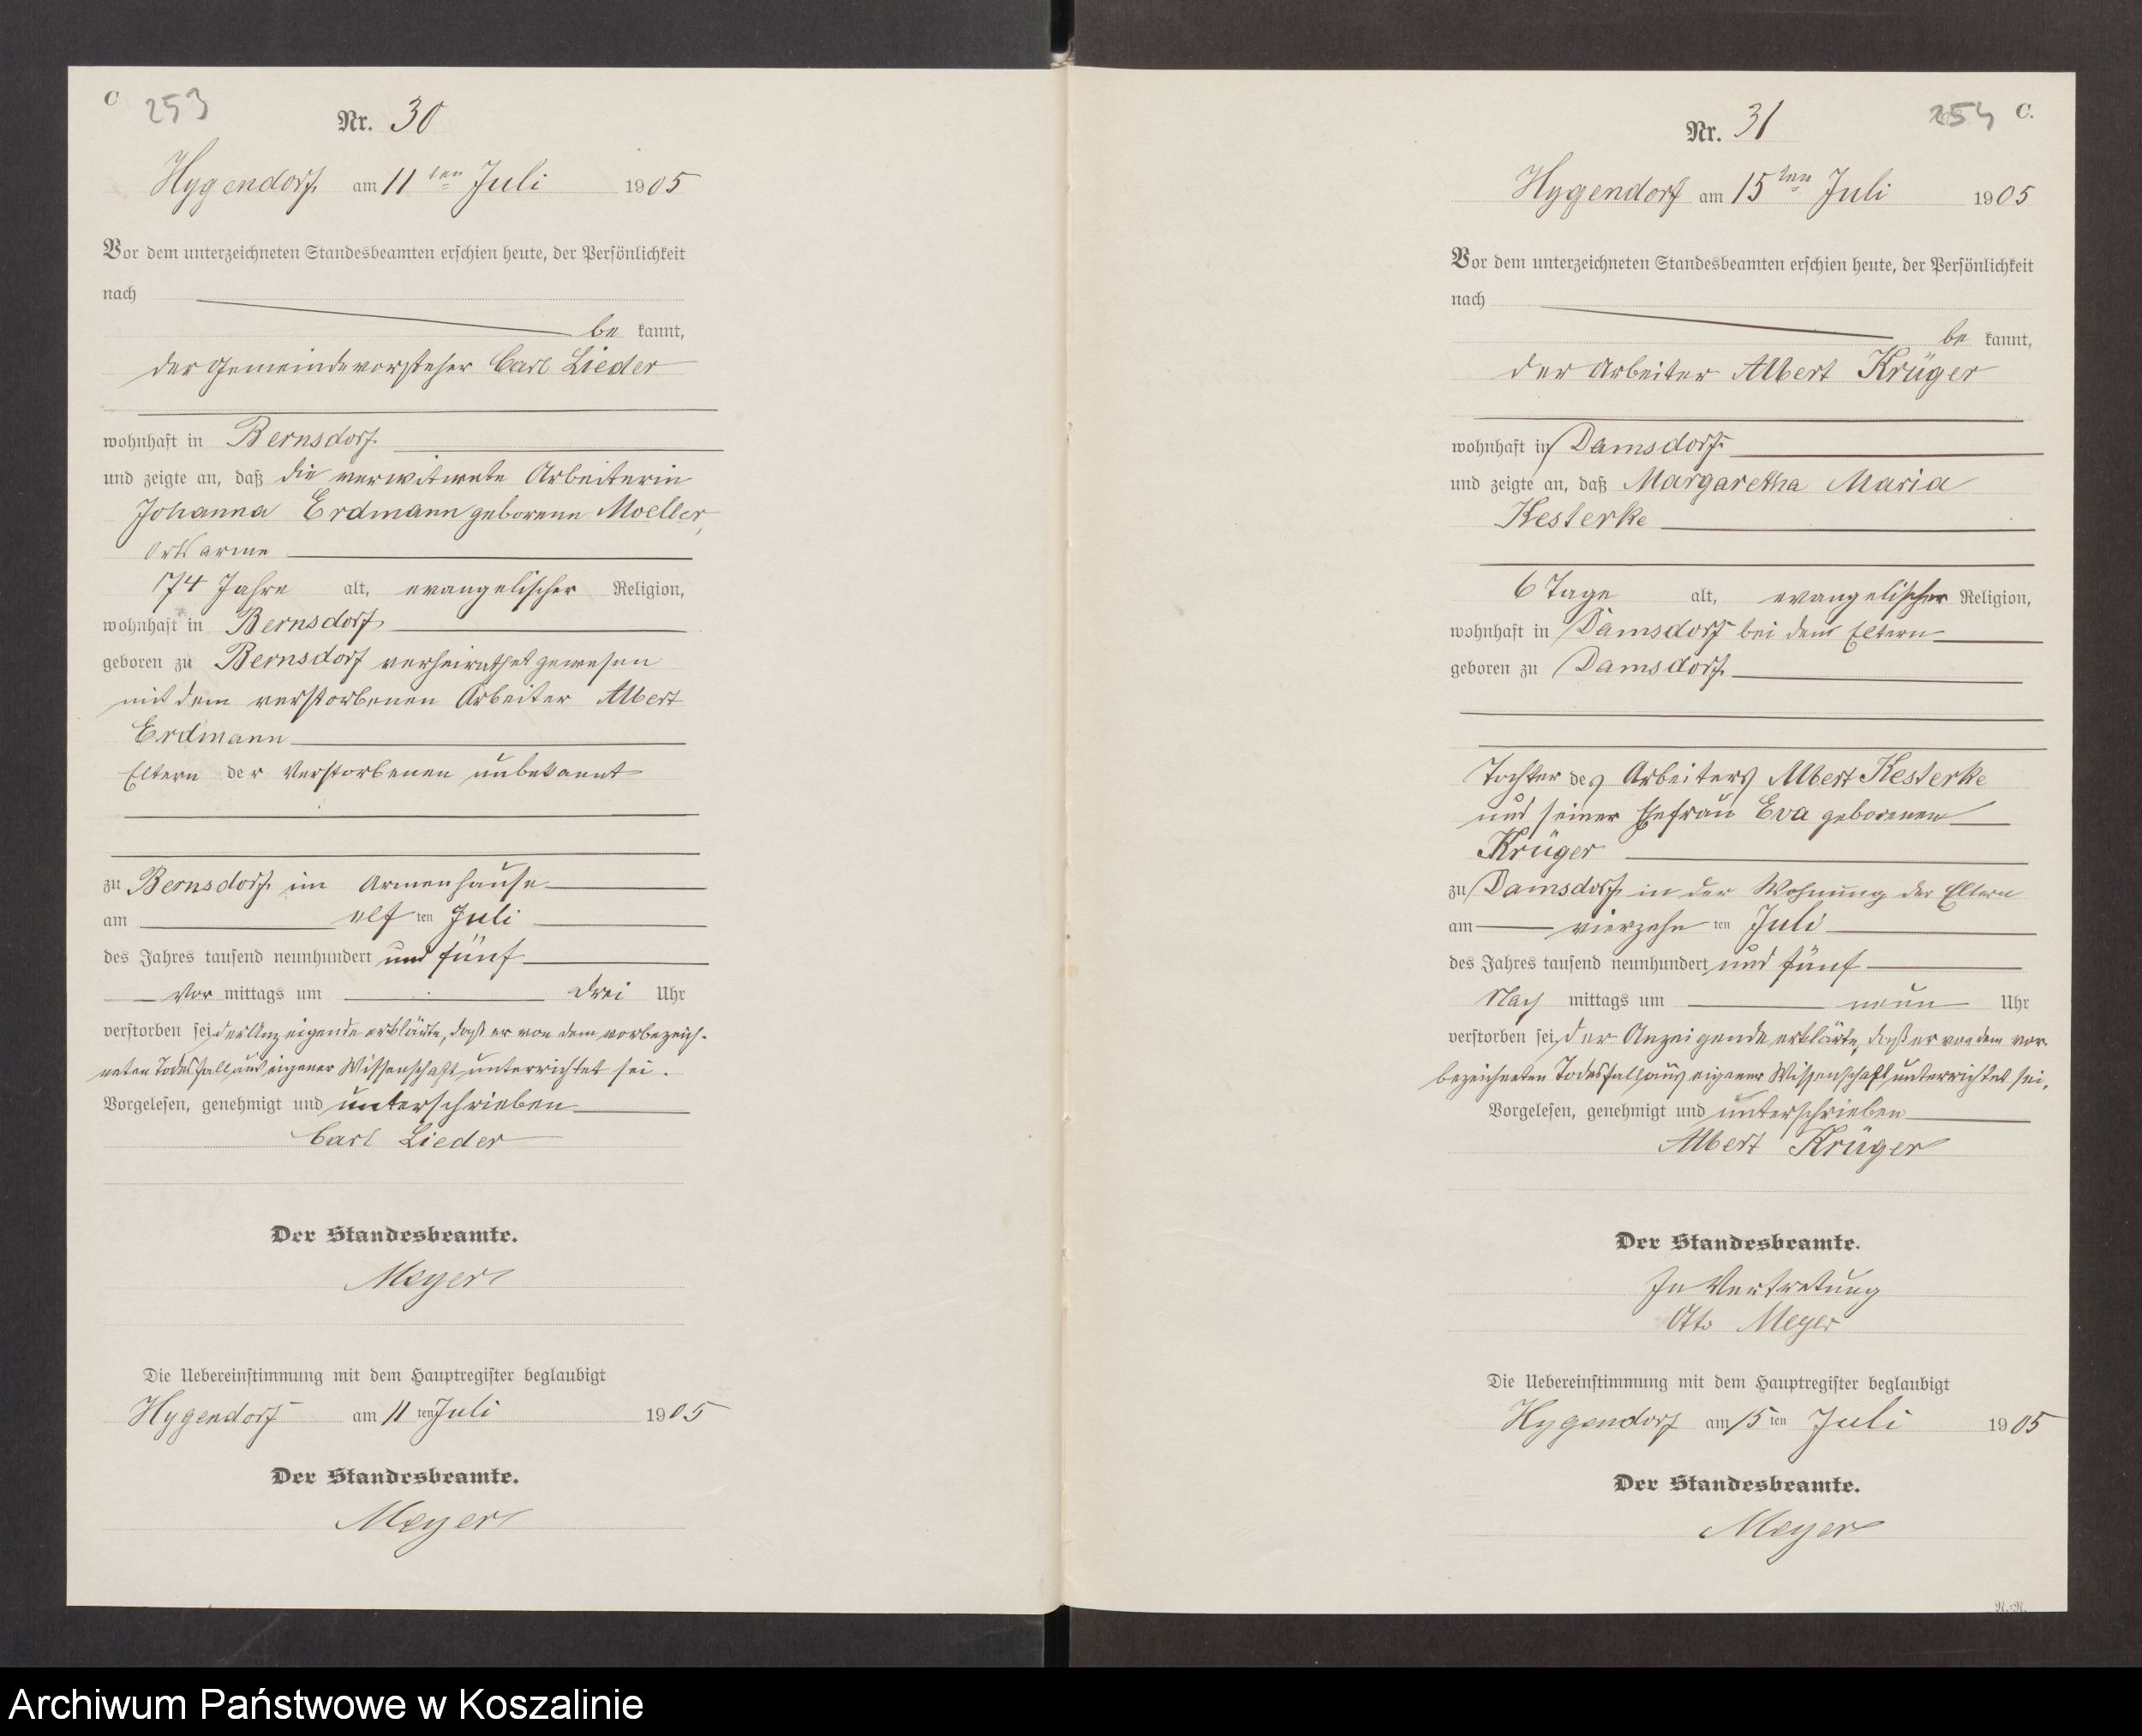 C 253
Nr. 30
Hygendorf am 11 ten Juli 1905
Vor dem unterzeichneten Standesbeamten erschien heute, der Persönlichkeit
nach
be kannt,
der Gemeindevorsteher Carl Lieder
wohnhaft in Bernsdorf
und zeigte an, daß die verwitwete Arbeiterin
Johanna Erdmann geborene Moeller,
Ortsarme
74 Jahre alt, evangelischer Religion,
wohnhaft in Bernsdorf
geboren zu Bernsdorf verheirathet gewesen
mit dem verstorbenen Arbeiter Albert
Erdmann
Eltern der Verstorbenen unbekannt
zu Bernsdorf im Armenhause
am elf ten Juli
des Jahres tausend neunhundert und fünf
Vor mittags um drei Uhr
verstorben sei, der Anzeigende erklärte, daß er von dem vorbezeich-
neten Todesfall aus eigener Wissenschaft unterrichtet sei.
Vorgelesen, genehmigt und unterschrieben
Carl Lieder
Der Standesbeamte.
Meyer
Die Uebereinstimmung mit dem Hauptregister beglaubigt
Hygendorf am 11 ten Juli 1905
Der Standesbeamte.
Meyer
254 C.
Nr. 31
Hygendorf am 15 ten Juli 1905
Vor dem unterzeichneten Standesbeamten erschien heute, der Persönlichkeit
nach
be kannt,
der Arbeiter Albert Krüger
wohnhaft in Damsdorf
und zeigte an, daß Margaretha Maria
Kesterke
6 Tage alt, evangelischer Religion,
wohnhaft in Damsdorf bei den Eltern
geboren zu Damsdorf
Tochter des Arbeiters Albert Kesterke
und seiner Ehefrau Eva geborenen
Krüger
zu Damsdorf in der Wohnung der Eltern
am vierzehn ten Juli
des Jahres tausend neunhundert und fünf
Nach mittags um neun Uhr
verstorben sei, der Anzeigende erklärte, daß er von dem vor
bezeichneten Todesfall aus eigener Wissenschaft unterrichtet sei.
Vorgelesen, genehmigt und unterschrieben
Albert Krüger
Der Standesbeamte.
In Vertretung
Otto Meyer
Die Uebereinstimmung mit dem Hauptregister beglaubigt
Hygendorf am 15 ten Juli 1905
Der Standesbeamte.
Meyer
Archiwum Państwowe w Koszalinie